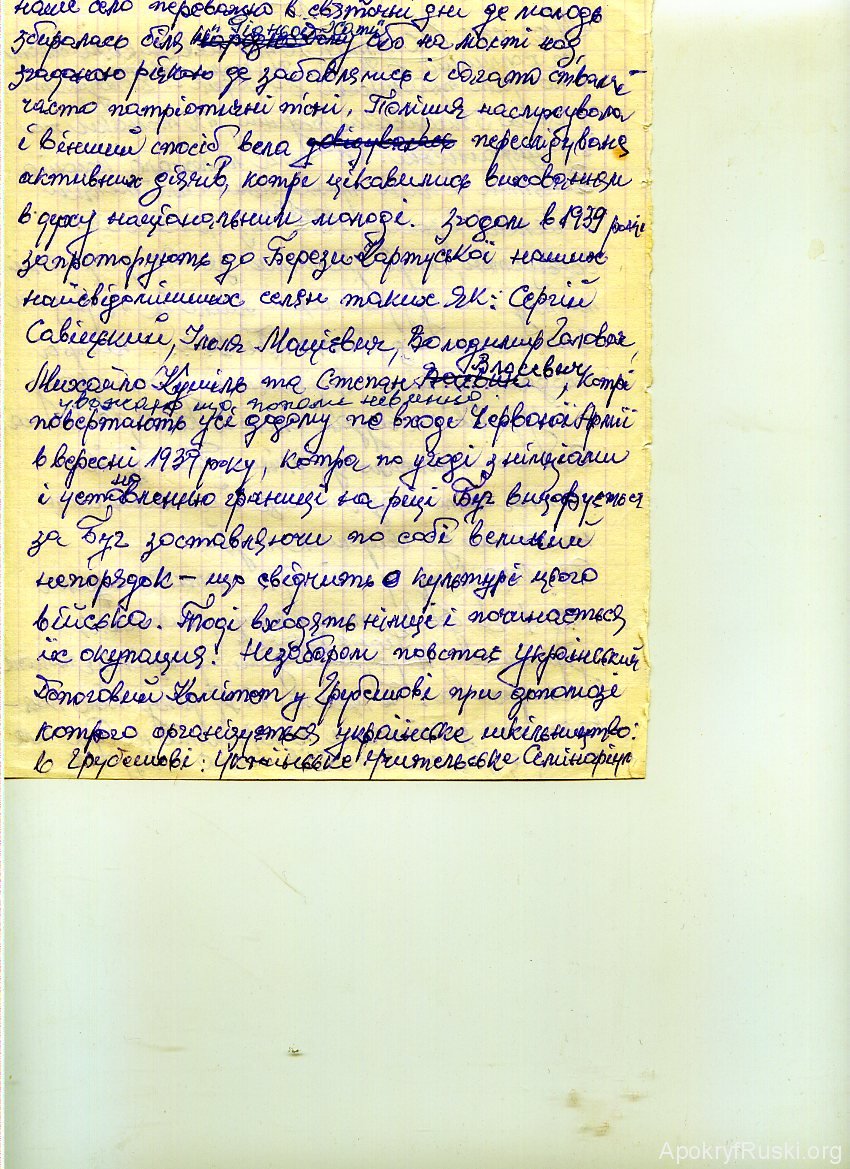 наше село переважно в святочні дни де молодь
збиралась біля "Рідной Хати" або на мості над
згаданою рікою де забавлялись і багато співали
часто патріотичні пісні. Поліция наслухувала
і в інший спосіб вела довідувалась переслідуваня
активних діячів, котрі цікавились вихованням
в духу національним молоді. Згодом в 1939 році
запроторують до Берези Картуської наших
найсвідомійших селян таких як: Сергій
Савіцкий, Ілля Мацієвич, Володимир Головач,
Михайло Кушіль та Степан Власевич, котрі
уважаю що попали невинно
повертають усі додому по входе Червоної Армії
в вересні 1939 року, котра по угоді з німцами
і установленню границі на ріці Буг вицофується
за Буг заставляючи по собі великий
непорядок – що свідчить о культурі цього
війська. Тоді входять німці і починається
їх окупация. Незабаром повстає український
Допоговий Комітет у Грубешові при допомозі
котрого організується українське шкільництво:
в Грубешові: Українське Учительське Семінаріум
ApokryfRuski.org